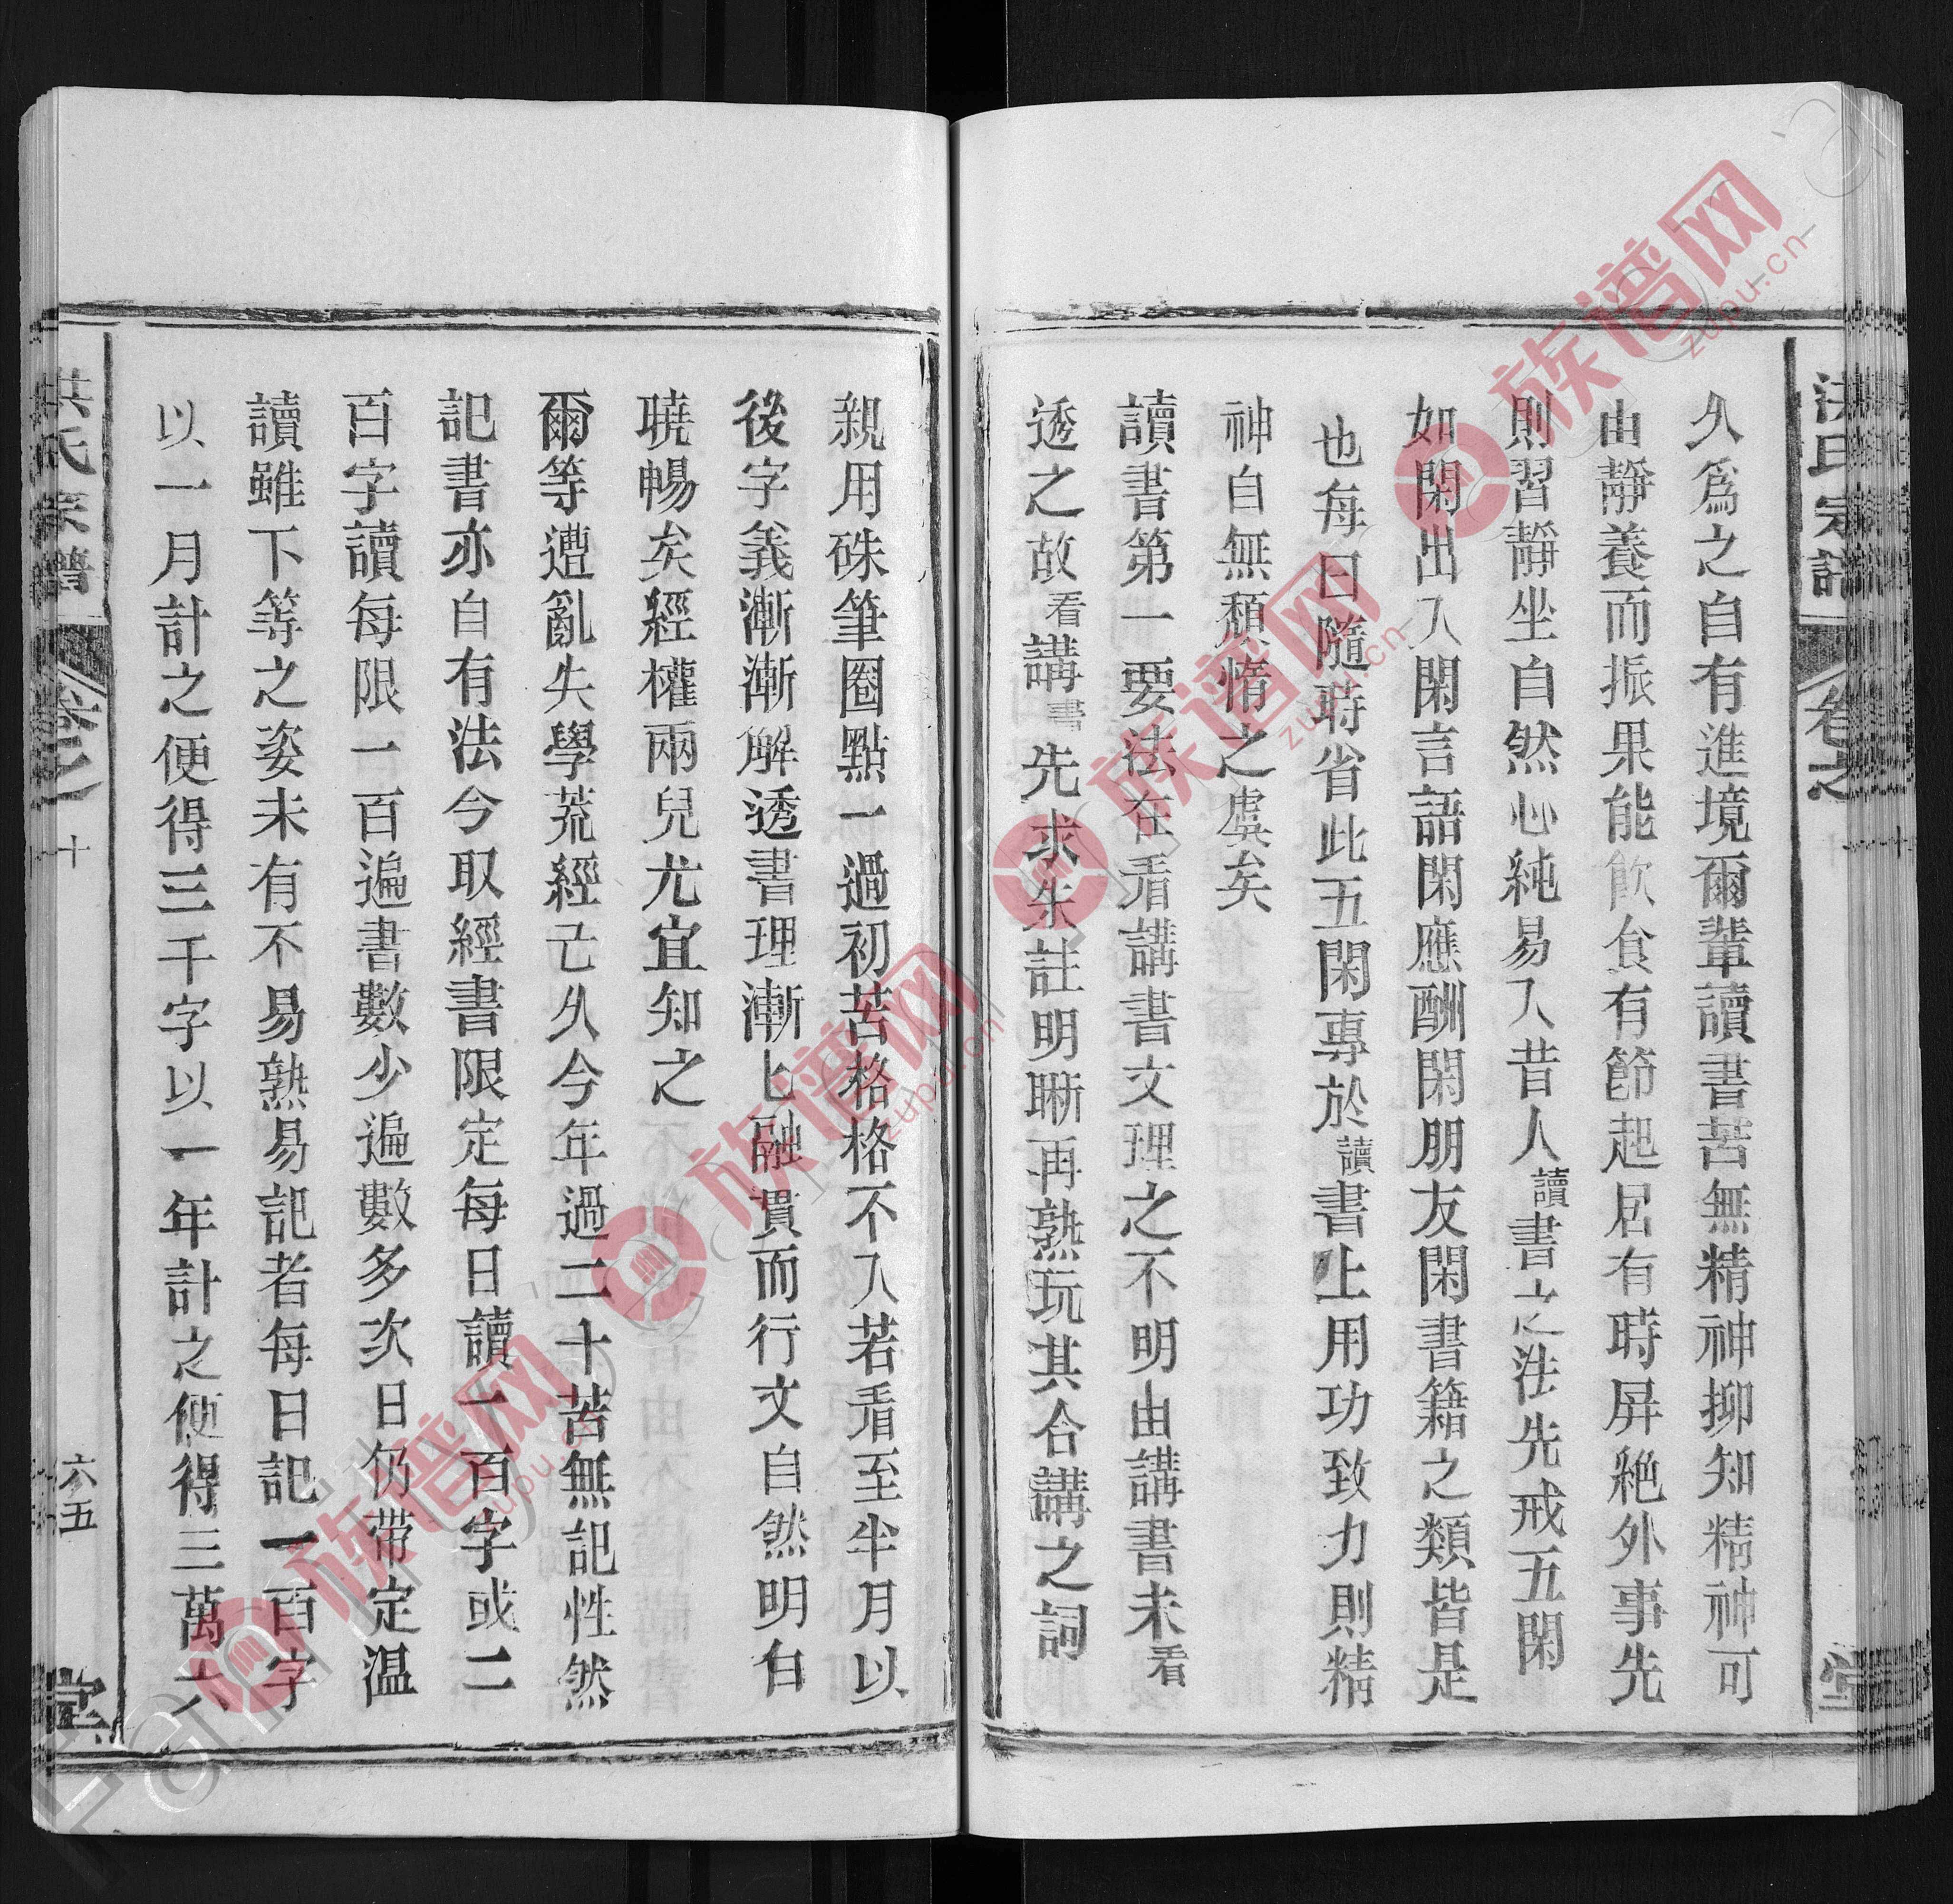 洪氏宗譜 卷之 十 堂
久爲之自有進境爾輩讀書苦無精神抑知精神可
由靜養而振果能飮食有節起居有時屏絶外事先
則習靜坐自然心純易入昔人讀書之法先戒五閑
如閑出入閑言語閑應酬閑朋友閑書籍之類皆是
也每日隨時省此五閑專於讀書上用功致力則精
神自無頹惰之虞矣
讀書第一要法在看講書文理之不明由講書未看
透之故看講書先求朱註明晰再熟玩其合講之詞
親用硃筆圈點一過初苦格格不入若看至半月以
後字義漸漸解透書理漸匕融貫而行文自然明白
曉暢矣經權兩兒尤宜知之
爾等遭亂失學荒經亡久今年過二十苦無記性然
記書亦自有法今取經書限定每日讀一百字或二
百字讀每限一百遍書數少遍數多次日仍带定温
讀雖下等之姿未有不易熟易記者每日記一百字
以一月計之便得三千字以一年計之便得三萬六
洪氏宗譜 卷之 十 六五 堂
族谱网
zupu.cn
族谱网
zupu.cn
族谱网
zupu.cn
族谱网
zupu.cn